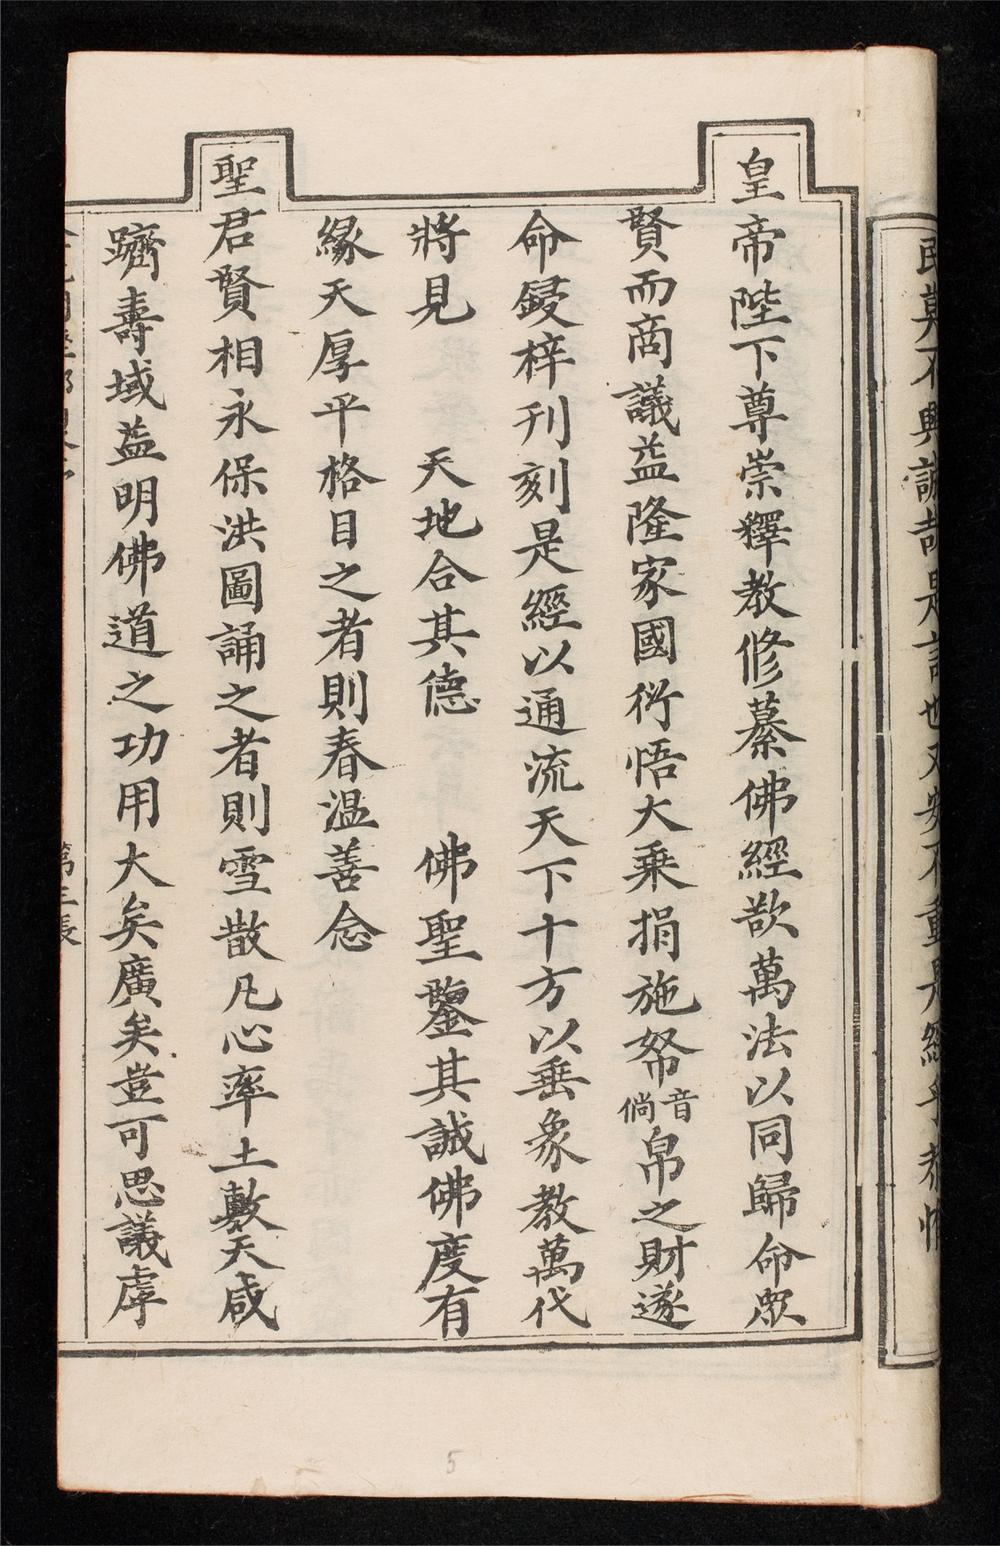 皇帝陛下尊崇釋教修纂佛經欲萬法以同歸命眾
賢而商議益隆家國衍悟大乘捐施帑音倘帛之財遂
命鋟梓刊刻是經以通流天下十方以垂象教萬代
將見 天地合其德 佛聖鑒其誠佛度有
緣天厚平格目之者則春溫善念
聖君賢相永保洪圖誦之者則雪散凡心率土敷天咸
躋壽域益明佛道之功用大矣廣矣豈可思議虖
5